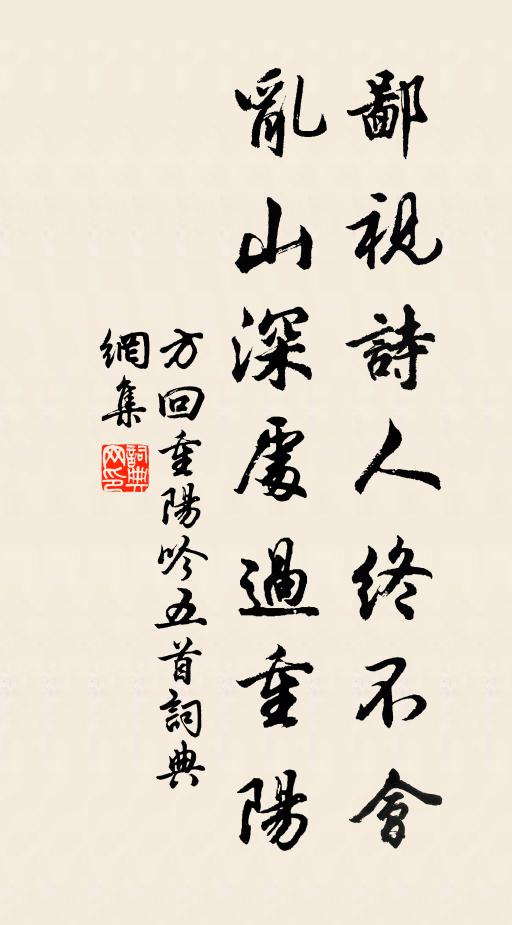 鄙視詩人終不會
亂山深處過重陽
方回重陽吟五首詞典
網集
詞典網印